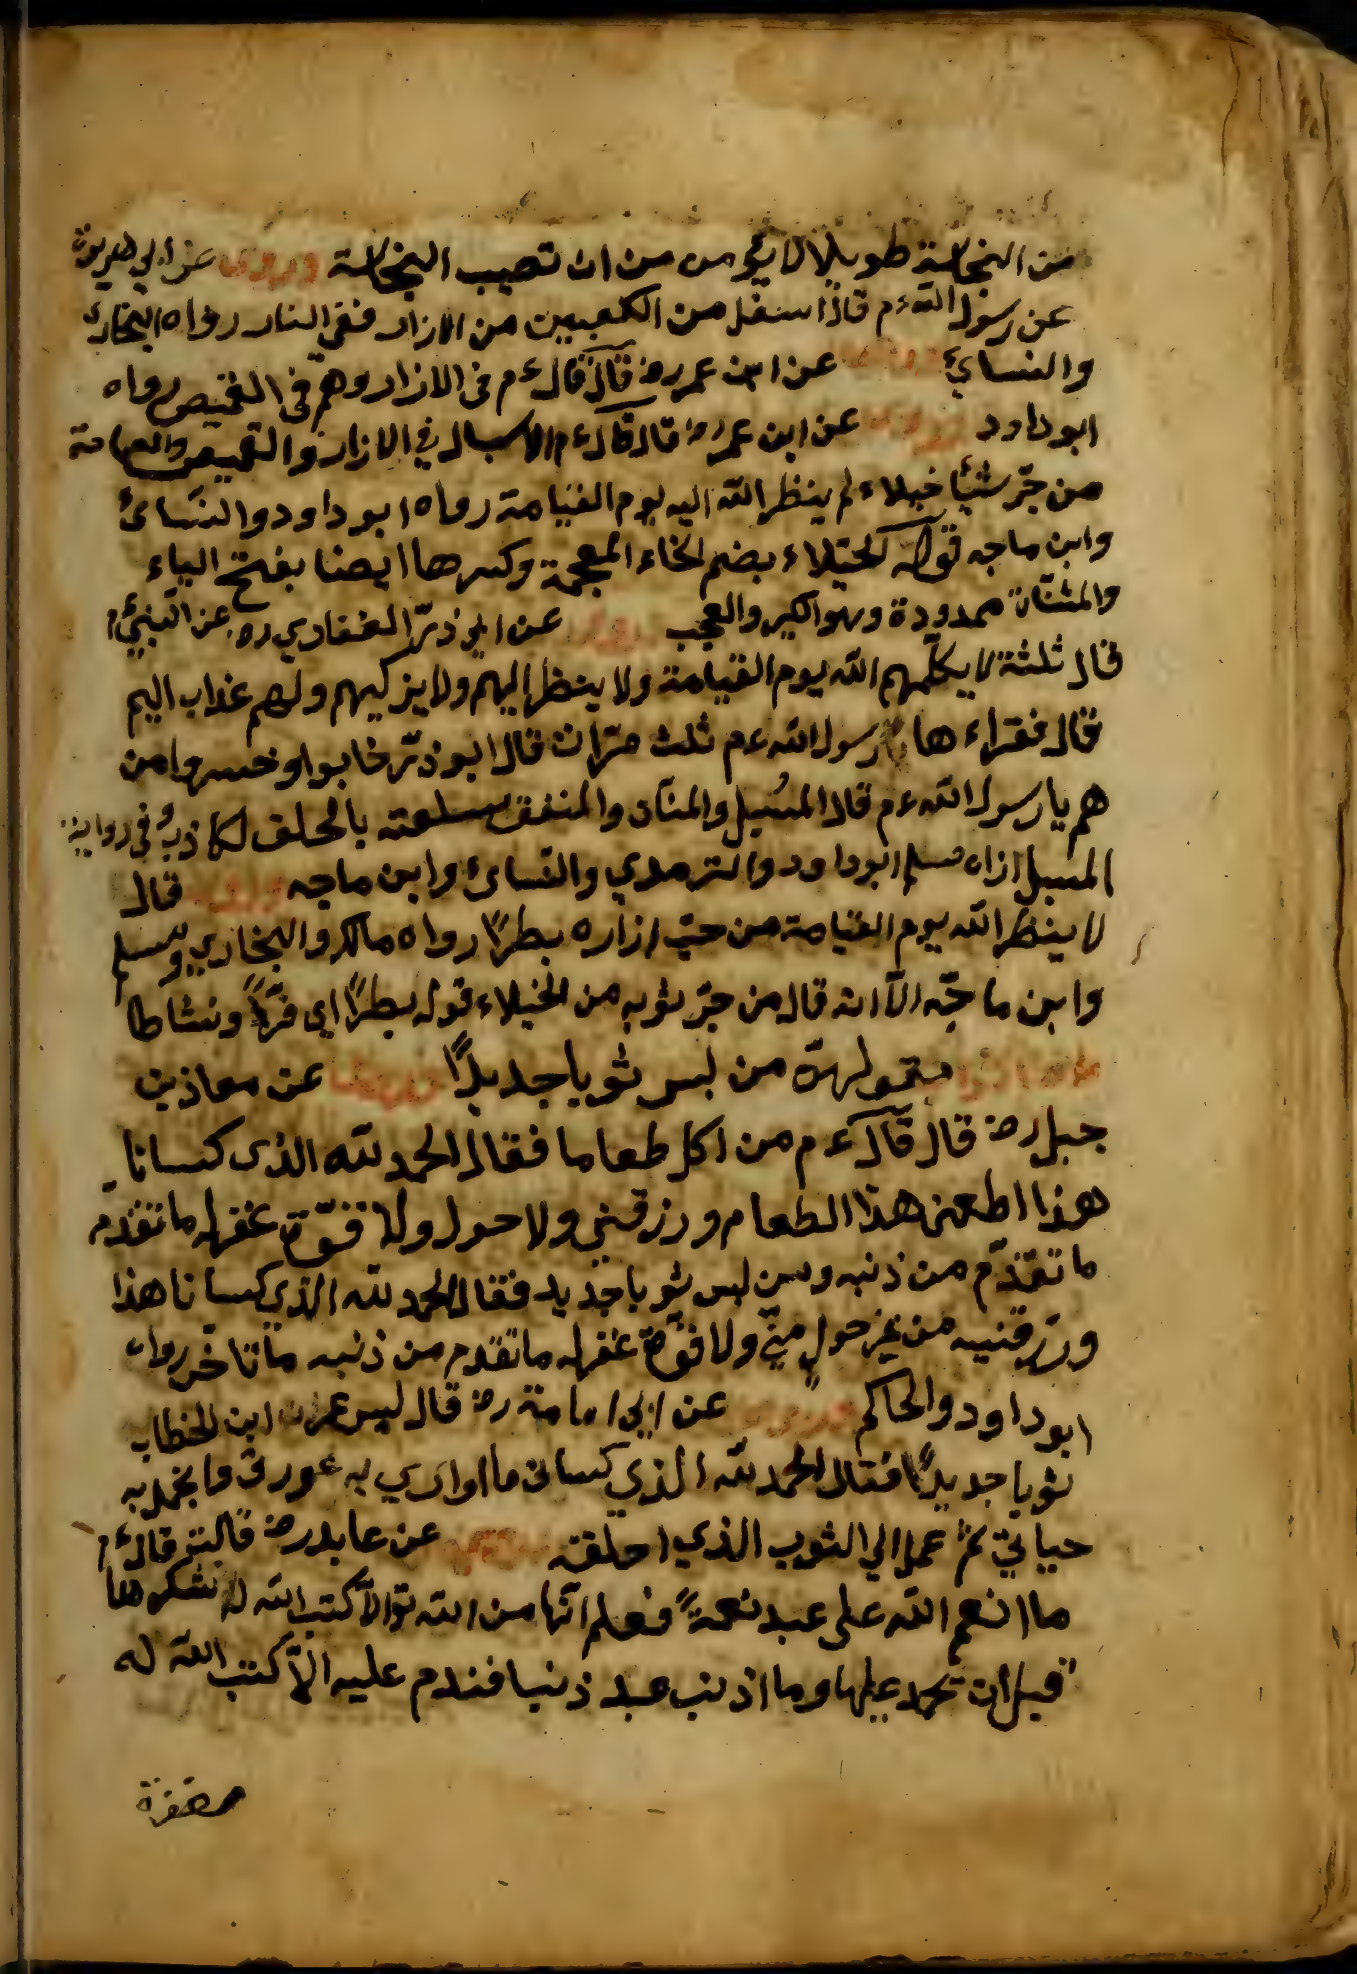 من النجاسة طويلا لا يؤمن من ان تصيب النجاسة وروى عن ابي هريرة
عن رسول الله ءم قال ما اسفل من الكعبين من الازار ففي النار رواه البخارى
والنسائي عن ابن عمر رض قال قال ءم فى الازار وهم فى القميص رواه
ابو داود وروى عن ابن عمر رض قال قال ءم الاسبال في الازار والقميص والعمامة
من جرّ شيئا خيلاء لم ينظر الله اليه يوم القيامة رواه ابو داود والنسائى
وابن ماجه قوله الخيلاء بضم الخاء المعجمة وكسرها ايضا بفتح الياء
والمثناة ممدودة وهو الكبر والعجب وروى عن ابي ذرّ الغفاري ره عن النبيّ ءم
قال ثلثة لا يكلّمهم الله يوم القيامة ولا ينظر اليهم ولا يزكيهم ولهم عذاب اليم
قال فقراءها رسول الله ءم ثلث مرّات قال ابو ذرّ خابوا وخسروا من
هم يا رسول الله ءم قال المسبل والمنّان والمنفق سلعته بالحلف الكاذب وفى رواية
المسبل ازاره مسلم ابو داود والترمدي والنسائ وابن ماجه وروى قال
لا ينظر الله يوم القيامة من جرّ ازاره بطرًا رواه مالك والبخاري ومسلم
وابن ماجّه الاّ انه قال من جرّ ثوبه من الخيلاء قوله بطرًا اي فرّحًا ونشاطا
من لبس ثوبا جديدًا عن معاذ بن
جبل رض قال قال ءم من اكل طعاما فقال الحمد لله الذى كسانا
هذا اطعمنى هذا الطعام ورزقنى ولا حول ولا قوّة غفر له ما تقدّم
ما تقدّم من ذنبه ومن لبس ثوبا جديد فقال الحمد لله الذي كسانا هذا
ورزقنيه من غير حول منّي ولا قوّة غفر له ما تقدم من ذنبه ما تاخّر رواه
ابو داود والحاكم وروى عن ابى امامة رض قال لبس عمر ابن الخطاب
ثوبا جديدًا فقال الحمد لله الذي كسانى ما اوارى به عورتى واتجمل به
حياتي ثم عمد الي الثوب الذي اخلقه عن عايد رض قالت قال ءم
ما انعم الله على عبد نعمةً فعلم انّها من الله الاّ كتب الله له شكرها
قبل ان تحمد عليها وما اذنب عبد ذنبا فندم عليه الاّ كتب الله له
مغفرة